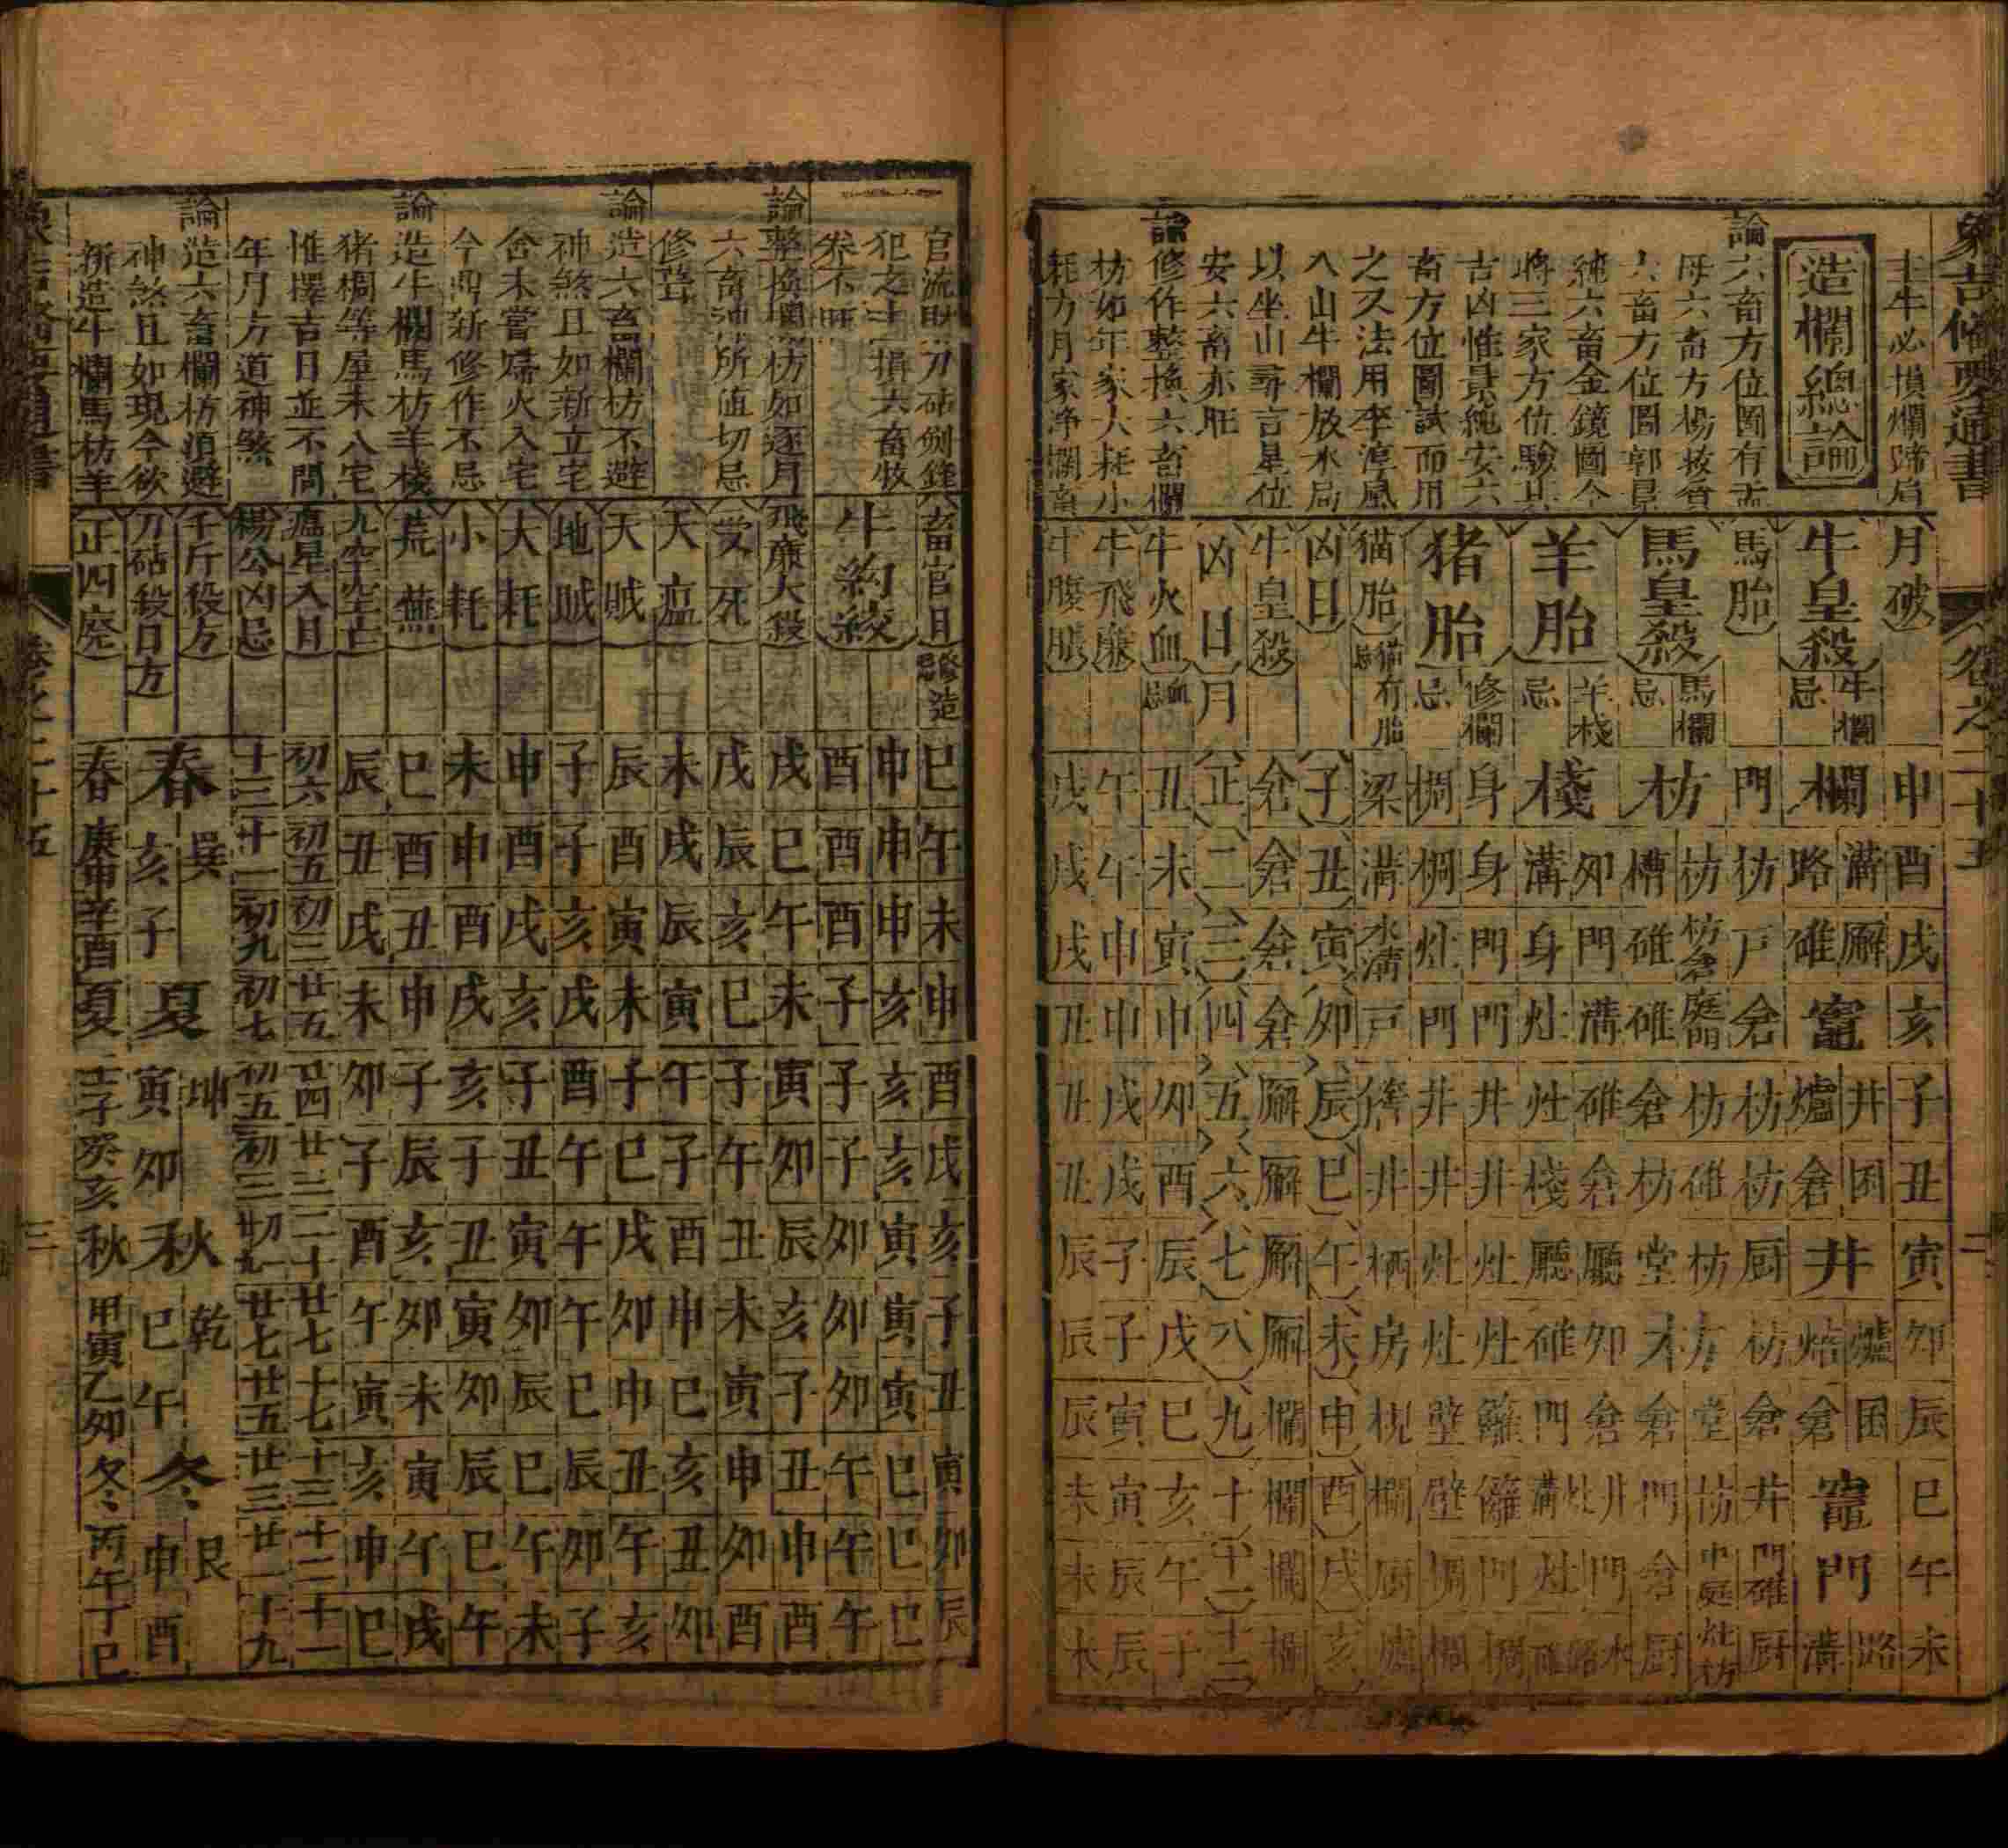 象吉備要通書 卷之二十五 二
主牛必損爛蹄肩
造欄總論
論六畜方位圖有
毋六畜方楊救貧
六畜方位圖郭景
純六畜金鏡圖今
將三家方位驗其
吉凶惟景純安六
畜方位圖試而用
之久法用李淳風
入山牛欄放水局
以坐山尋言星位
安六畜亦旺
論修作整換六畜欄
枋如年家大耗小
耗方月家淨欄畜
月破 申 酉 戌 亥 子 丑 寅 卯 辰 巳 午 未
牛皇殺 牛欄忌 欄 溝路 厮碓 竈 井爐 囷倉 井 爐焙 囷倉 竈 門 路溝
馬胎 門 枋 戶 倉 枋 枋 厨 枋 倉 井 門碓 厨
馬皇殺 馬欄忌 枋 枋槽 枋倉碓 庭門碓 枋倉 碓枋 枋堂 方木 堂倉 枋門 中庭倉 灶枋厨
羊胎 羊棧忌 棧 卯溝 門身 溝灶 碓灶 倉棧 廳廳 卯碓 倉門 井灶溝 門灶 水路碓
猪胎 修欄忌 身椆 身椆 門灶 門門 井井 井井 灶灶 灶灶 籬壁 籬壁 門椆 椆椆
猫胎 猫有胎忌 梁 溝 水溝 戶 井 栖 房 枕 欄 厨 爐
凶日 子 丑 寅 卯 辰 巳 午 未 申 酉 戌 亥
牛皇殺 倉 倉 倉 倉 厮 厮 厮 厮 欄 欄 欄 欄
凶日 月 正 二 三 四 五 六 七 八 九 十 十一 十二
牛火血 血忌 丑 未 寅 申 卯 酉 辰 戌 巳 亥 午 子
牛飛廉 午 午 申 申 戌 戌 子 子 寅 寅 辰 辰
牛腹脹 戌 戌 戌 丑 丑 丑 辰 辰 辰 未 未 未
官流財刀砧劍鋒
犯之主損六畜牧
養不旺
論整換欄枋如逐月
六畜神所值切忌
修葺
論造六畜欄枋不避
神煞且如新立宅
舍未嘗歸火入宅
今鼎新修作不忌
論造牛欄馬枋羊棧
猪椆等屋未入宅
惟擇吉日並不問
年月方道神煞
論造六畜欄枋須避
神煞且如現今欲
新造牛欄馬枋羊
六畜官日 修造忌 巳 午 未 申 酉 戌 亥 子 丑 寅 卯 辰
牛絇絞 申酉 申酉 申酉 亥子 亥子 亥子 寅卯 寅卯 寅卯 巳午 巳午 巳午
飛廉大殺 戌 巳 午 未 寅 卯 辰 亥 子 丑 申 酉
受死 戌 辰 亥 巳 子 午 丑 未 寅 申 卯 酉
天瘟 未 戌 辰 寅 午 子 酉 申 巳 亥 丑 卯
天賊 辰 酉 寅 未 子 巳 戌 卯 申 丑 午 亥
地賊 子 子 亥 戌 酉 午 午 午 巳 辰 卯 子
大耗 申 酉 戌 亥 子 丑 寅 卯 辰 巳 午 未
小耗 未 申 酉 戌 亥 子 丑 寅 卯 辰 巳 午
荒蕪 巳 酉 丑 申 子 辰 亥 卯 未 寅 午 戌
九空空亡 辰 丑 戌 未 卯 子 酉 午 寅 亥 申 巳
瘟星入日 初六 初五 初三 廿五 廿四 廿三 二十 廿七 十七 十三 十二 十一
楊公凶忌 十三 十一 初九 初七 初五 初三 初一廿九 廿七 廿五 廿三 廿一 十九
千斤殺方 春 巽 夏 坤 秋 乾 冬 艮
刀砧殺日方 亥子 寅卯 巳午 申酉
正四廢 春 庚申辛酉 夏 壬子癸亥 秋 甲寅乙卯 冬 丙午丁巳
卷之二十五 三